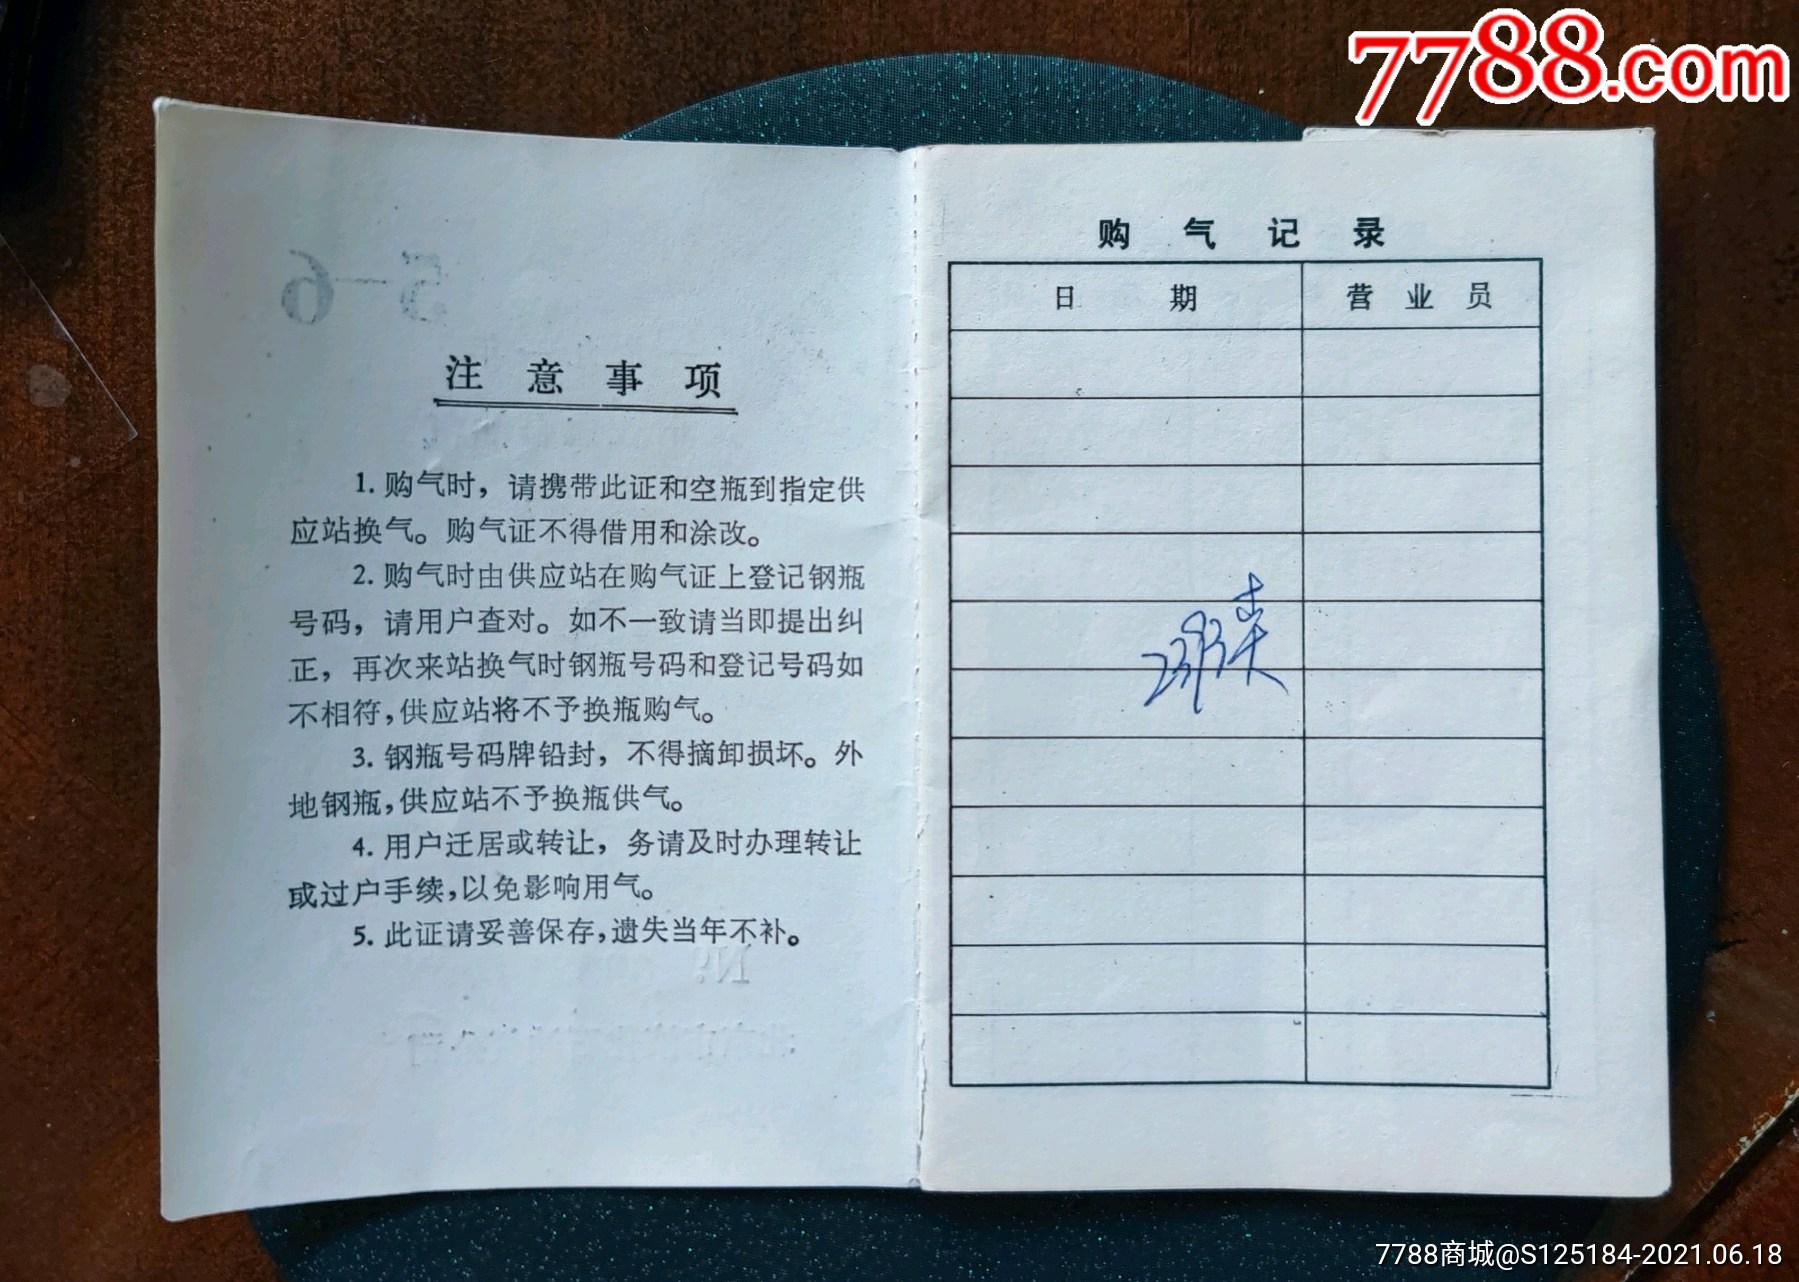 7788.com
5-6
注意事项
1. 购气时，请携带此证和空瓶到指定供
应站换气。购气证不得借用和涂改。
2. 购气时由供应站在购气证上登记钢瓶
号码，请用户查对。如不一致请当即提出纠
正，再次来站换气时钢瓶号码和登记号码如
不相符，供应站将不予换瓶购气。
3. 钢瓶号码牌铅封，不得摘卸损坏。外
地钢瓶，供应站不予换瓶供气。
4. 用户迁居或转让，务请及时办理转让
或过户手续，以免影响用气。
5. 此证请妥善保存，遗失当年不补。
购气记录
日期 营业员
7788商城@S125184-2021.06.18